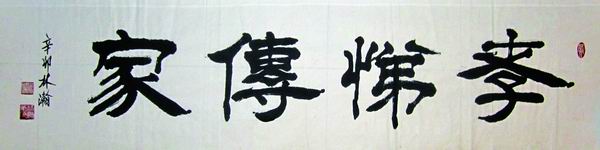 孝悌傳家
辛卯林瀚